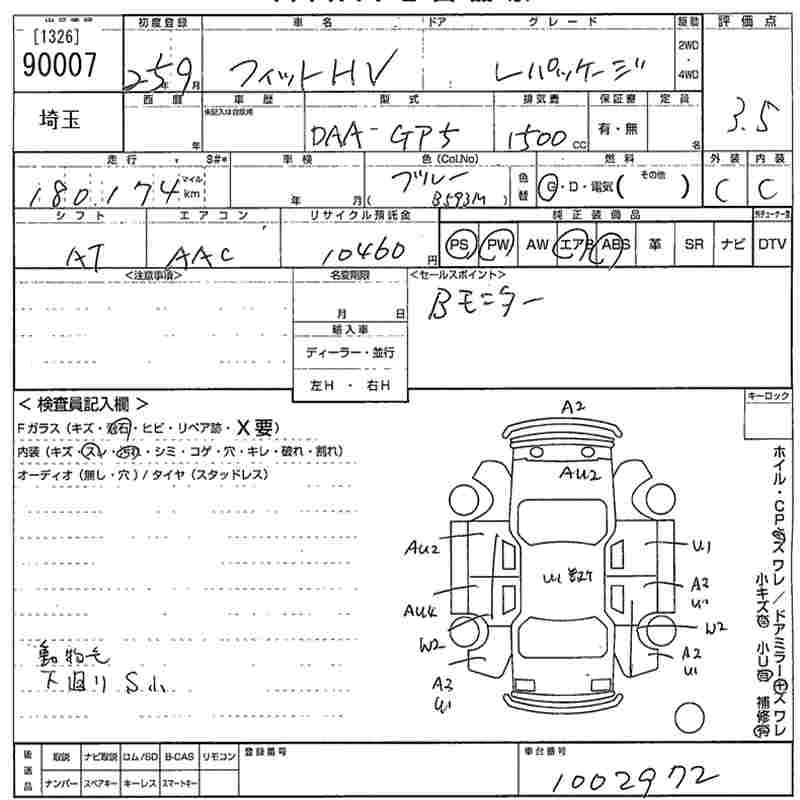 初度登録 車名 ドア グレード 駆動 評価点
[1326]
90007
25 年 9 月 フィットHV Lパッケージ 2WD ・ 4WD
3.5
埼玉 西暦 年 車歴 未記入は自家用 型式 排気量 保証書 定員
DAA-GP5 1500 CC 有・無 名
走行 S#* 車検 色(Col.No) 燃料 外装 内装
180,174 マイル km 年 月 ブルー ( B593M ) 色替 G・D・電気( その他 ) C C
シフト エアコン リサイクル預託金 純正装備品
AT AAC 10460 円 PS PW AW エアB ABS 革 SR ナビ DTV
<注意事項> 名変期限 <セールスポイント>
月 日 Bモニター
輸入車
ディーラー・並行
左H ・ 右H
<検査員記入欄> キーロック
Fガラス(キズ・飛石・ヒビ・リペア跡・X要)
内装(キズ・スレ・汚れ・シミ・コゲ・穴・キレ・破れ・割れ)
オーディオ(無し・穴)/タイヤ(スタッドレス)
A2
AU2
AU2 U1
AU4 A2 U1
W2 W2
A3 U1 A2 U1
動物毛
下廻りS小
ホイル・CP キズ ワレ/ドアミラー キズ ワレ
小キズ有 小U有 補修有
後送品 取説 ナビ取説 ロム/SD B-CAS リモコン 登録番号 車台番号
ナンバー スペアキー キーレス スマートキー 1002972